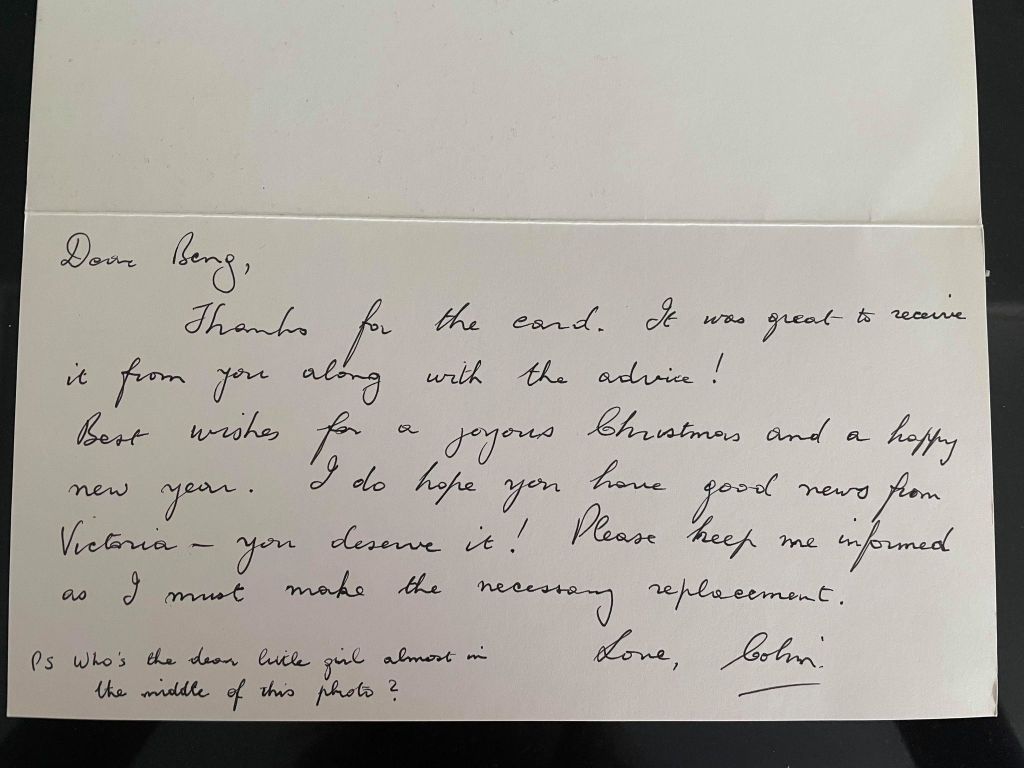 Dear Beng,
Thanks for the card. It was great to receive
it from you along with the advice!
Best wishes for a joyous Christmas and a happy
new year. I do hope you have good news from
Victoria – you deserve it! Please keep me informed
as I must make the necessary replacement.
Love, Colin.
PS Who's the dear little girl almost in
the middle of this photo?